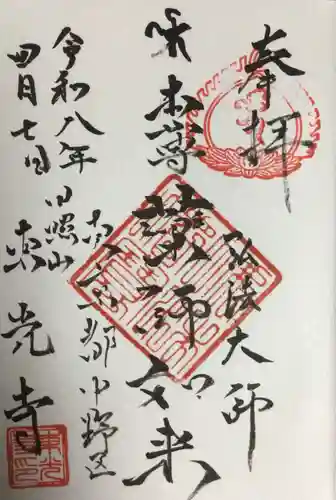 奉拝
弘法大師
本尊薬師如来
東京都中野区
日照山
東光寺
令和八年
四月七日